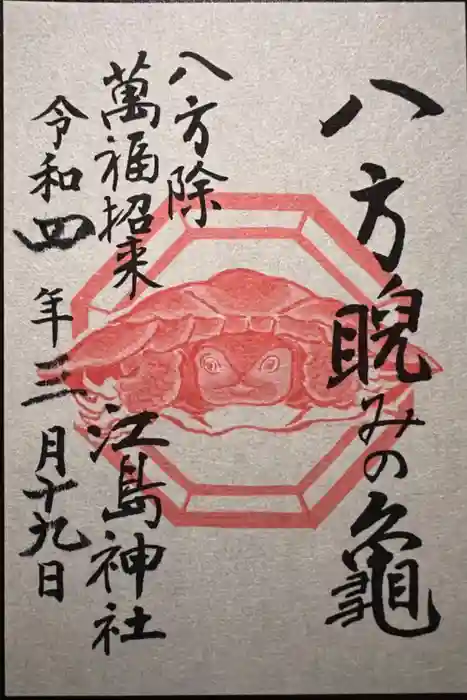 八方睨みの龜
八方除
萬福招来
江島神社
令和四年三月十九日